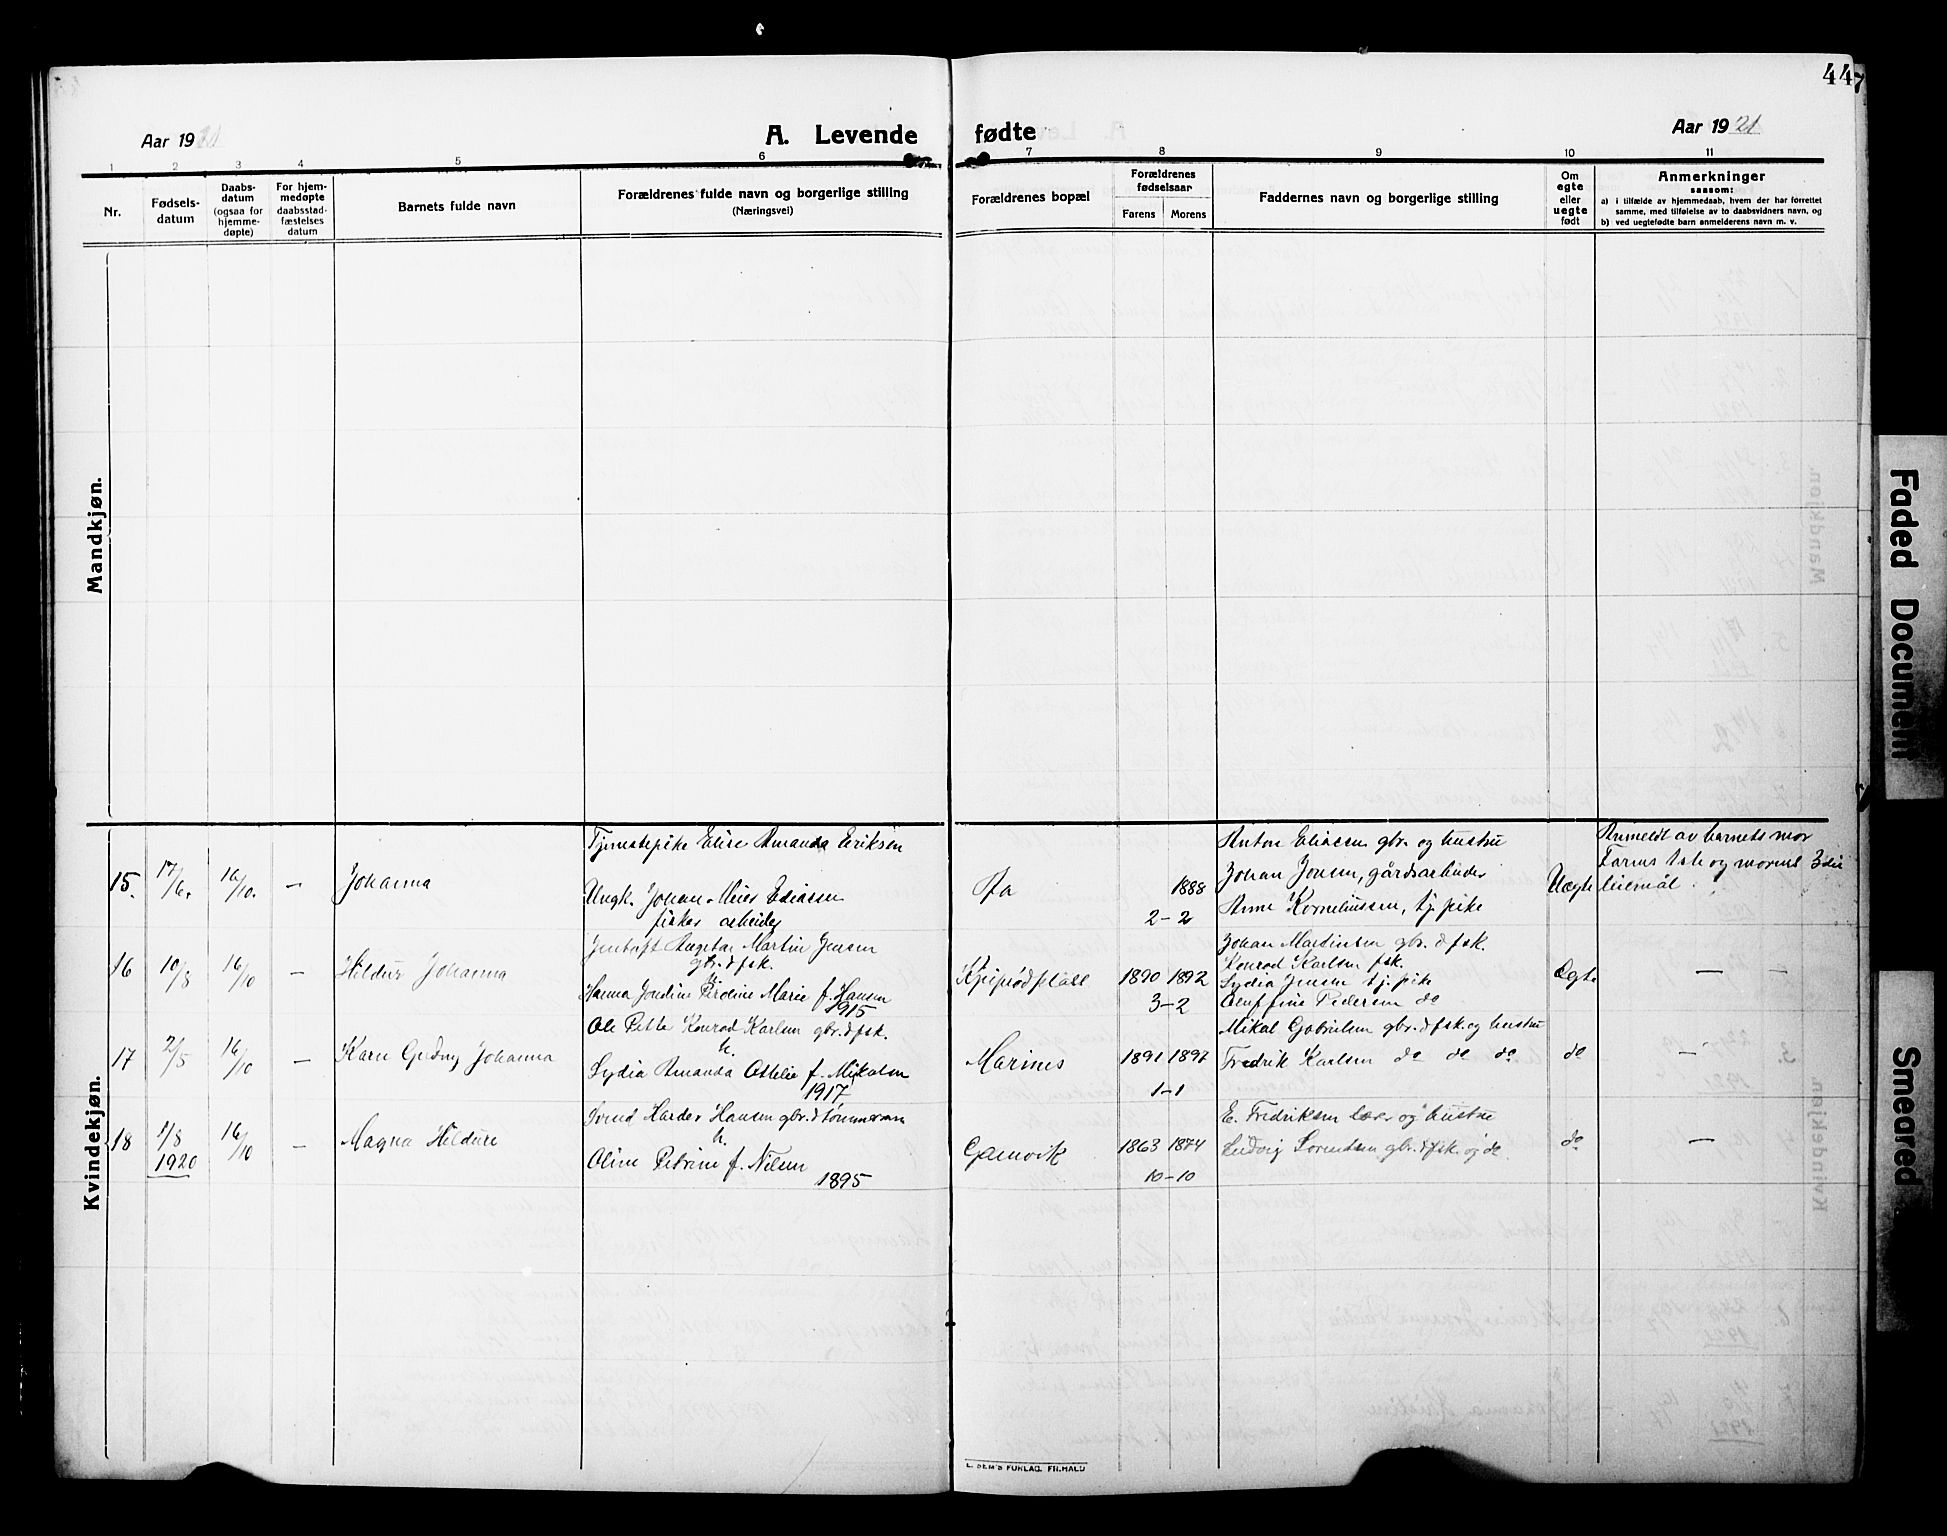 44
Aar 19
A. Levende fødte
Aar 1921
1 2 3 4 5 6 7 8 9 10 11
Nr.
Fødsels-
datum
Daabs-
datum
(ogsaa for
hjemme-
døpte)
For hjem-
medøpte
daabsstad-
fæstelses
datum
Barnets fulde navn
Forældrenes fulde navn og borgerlige stilling
(Næringsvei)
Forældrenes bopæl
Forældrenes
fødselsaar
Farens Morens
Faddernes navn og borgerlige stilling
Om
egte
eller
uegte
født
Anmerkninger
saasom:
a) i tilfælde av hjemmedaab, hvem der har forrettet
samme, med tilføielse av to daabsvidners navn, og
b) ved uegtefødte barn anmelderens navn m. v.
Mandkjøn.
Kvindekjøn.
15. 17/6. 16/10. — Johanna
Tjenestepike Elise Amanda Eriksen
Ungk. Johan Meier Eliasen
fisker arbeider
1888
2-2
Anton Eliasen gbr. og hustru
Johan Jensen, gårdsarbeider
Anne Korneliussen, tj. pike
Uegte
Anmeldt av barnets mor
Farens 1ste og morens 3die
leiermål.
16 10/8 16/10 — Hildur Johanna
Jentoft Angetar Martin Jensen
gbr. & fsk.
h.
Hanna Jordine Marie f. Hansen
1915
1890 1892
3-2
Johan Martinsen gbr. & fsk.
Konrad Karlsen fsk.
Lydia Jensen tj. pike
Oluffine Pedersen do
Egte — —
17 2/5 16/10 — Karn Gudny Johanna
Ole Petter Konrad Karlsen gbr. & fsk.
h.
Lydia Amanda Ottelie f. Mikalsen
1917
Marines
1891 1897
1-1
Mikal Gabrielsen gbr. & fsk. og hustru
Fredrik Karlsen do do do
do —
18 1/8 16/10 — Magna Hildure
1920
Svend Harder Hansen gbr. & tømmerm
h.
Oline Petrine f. Nilsen
1895
Gamvik
1863 1874
10-10
E. Fredriksen lær. og hustru
Ludvig Sørensen gbr. & fsk. og do.
do —
E. SEM'S FORLAG, FR.HALD
Faded Document
Smeared